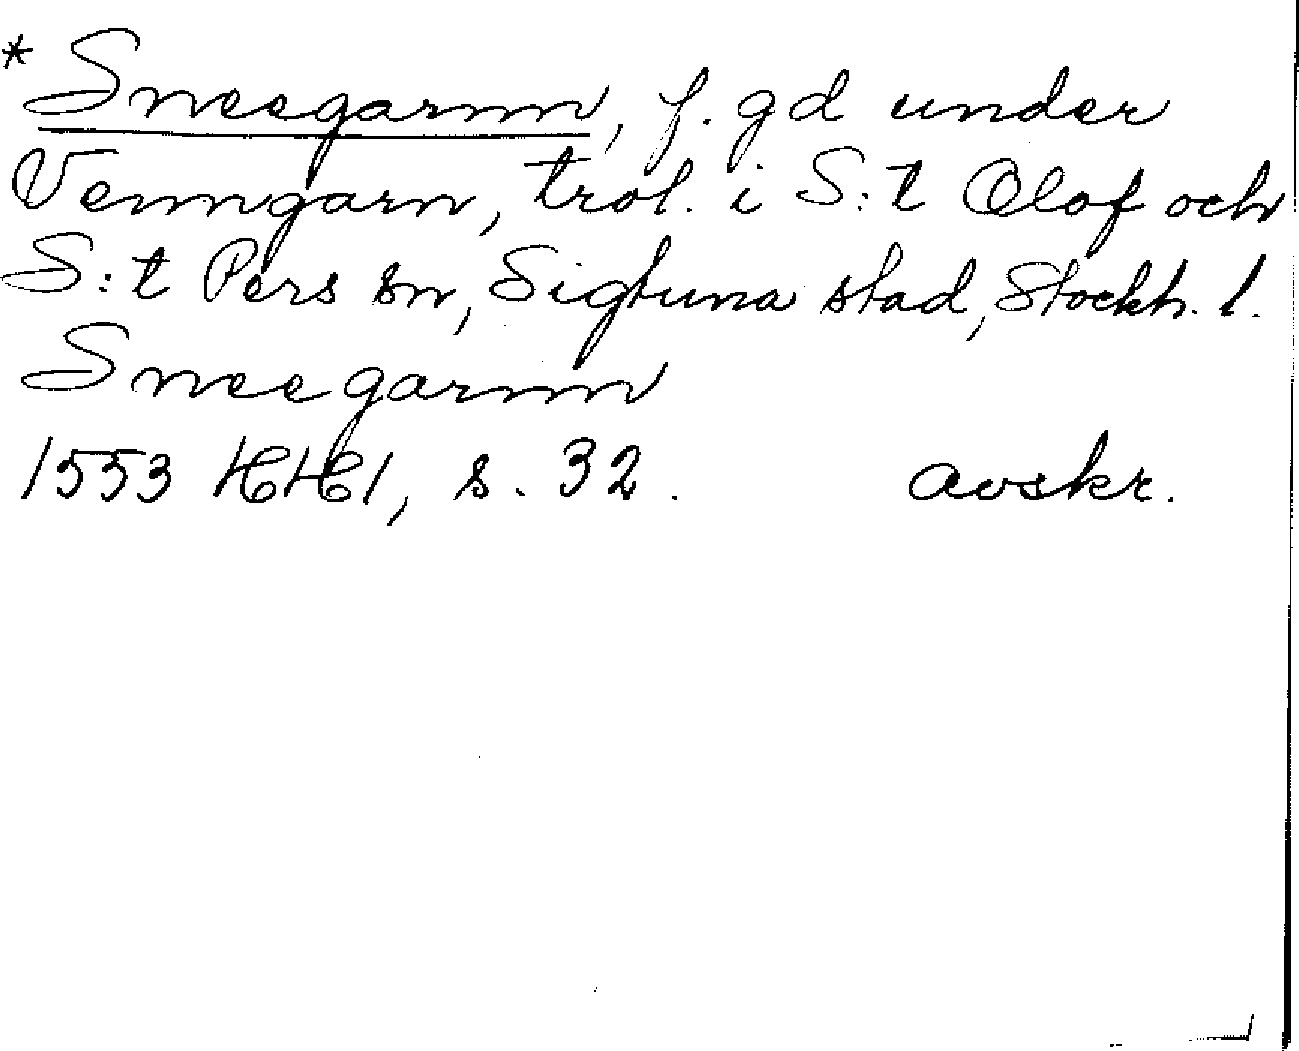 * Sneegarnn, f. gd under
Venngarn, trol. i S:t Olof och
S:t Pers sn, Sigtuna stad, Stockh. l.
Sneegarnn
1553 HH1, s. 32. avskr.